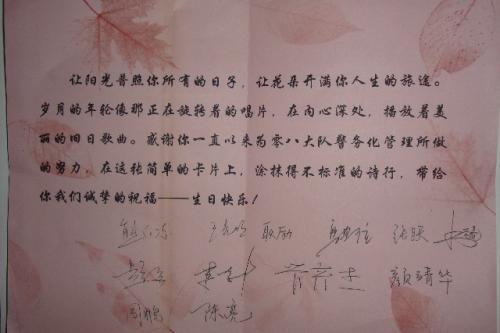 让阳光普照你所有的日子，让花朵开满你人生的旅途。
岁月的年轮像那正在旋转着的唱片，在内心深处，播放着美
丽的旧日歌曲。感谢你一直以来为零八大队警务化管理所做
的努力，在这张简单的卡片上，涂抹得不标准的诗行，带给
你我们诚挚的祝福——生日快乐！
耿励
颜靖华
陈亮